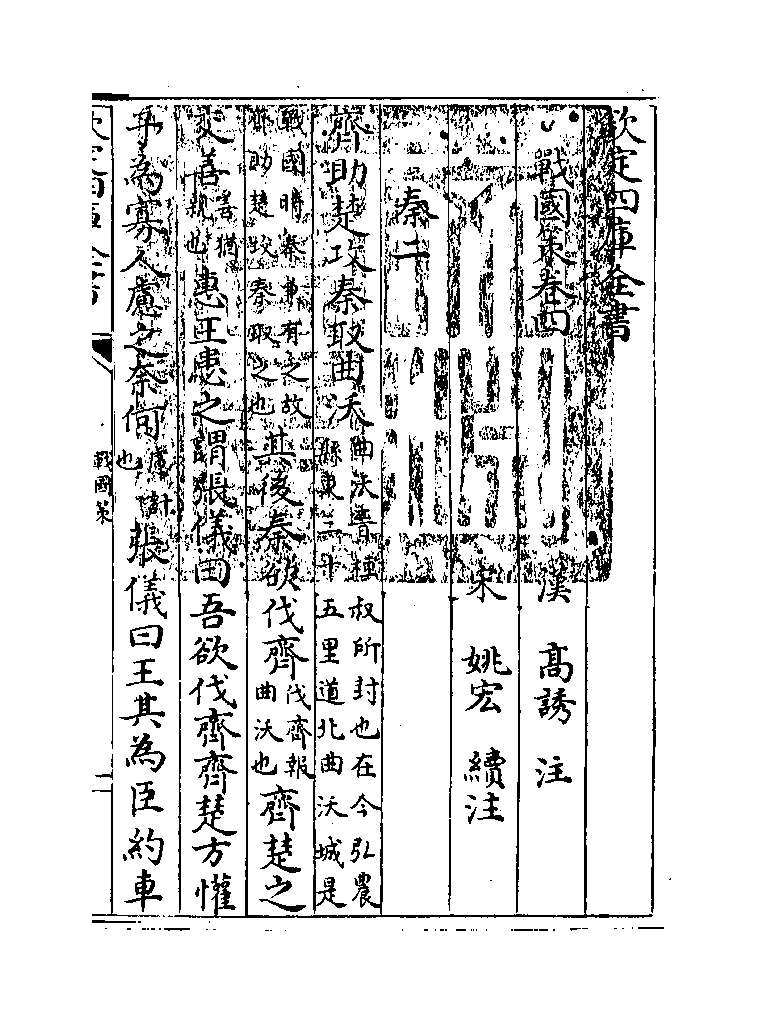 欽定四庫全書
戰國策卷四
漢 高誘 注
宋 姚宏 續注
秦二
齊助楚攻秦取曲沃曲沃晉桓叔所封也在今弘農
縣東三十五里道北曲沃城是
戰國時秦兼有之故
齊助楚攻秦取之也其後秦欲伐齊伐齊報
曲沃也齊楚之
交善善猶
親也惠王患之謂張儀曰吾欲伐齊齊楚方懽
子為寡人慮之奈何慮計
也張儀曰王其為臣約車
戰國策